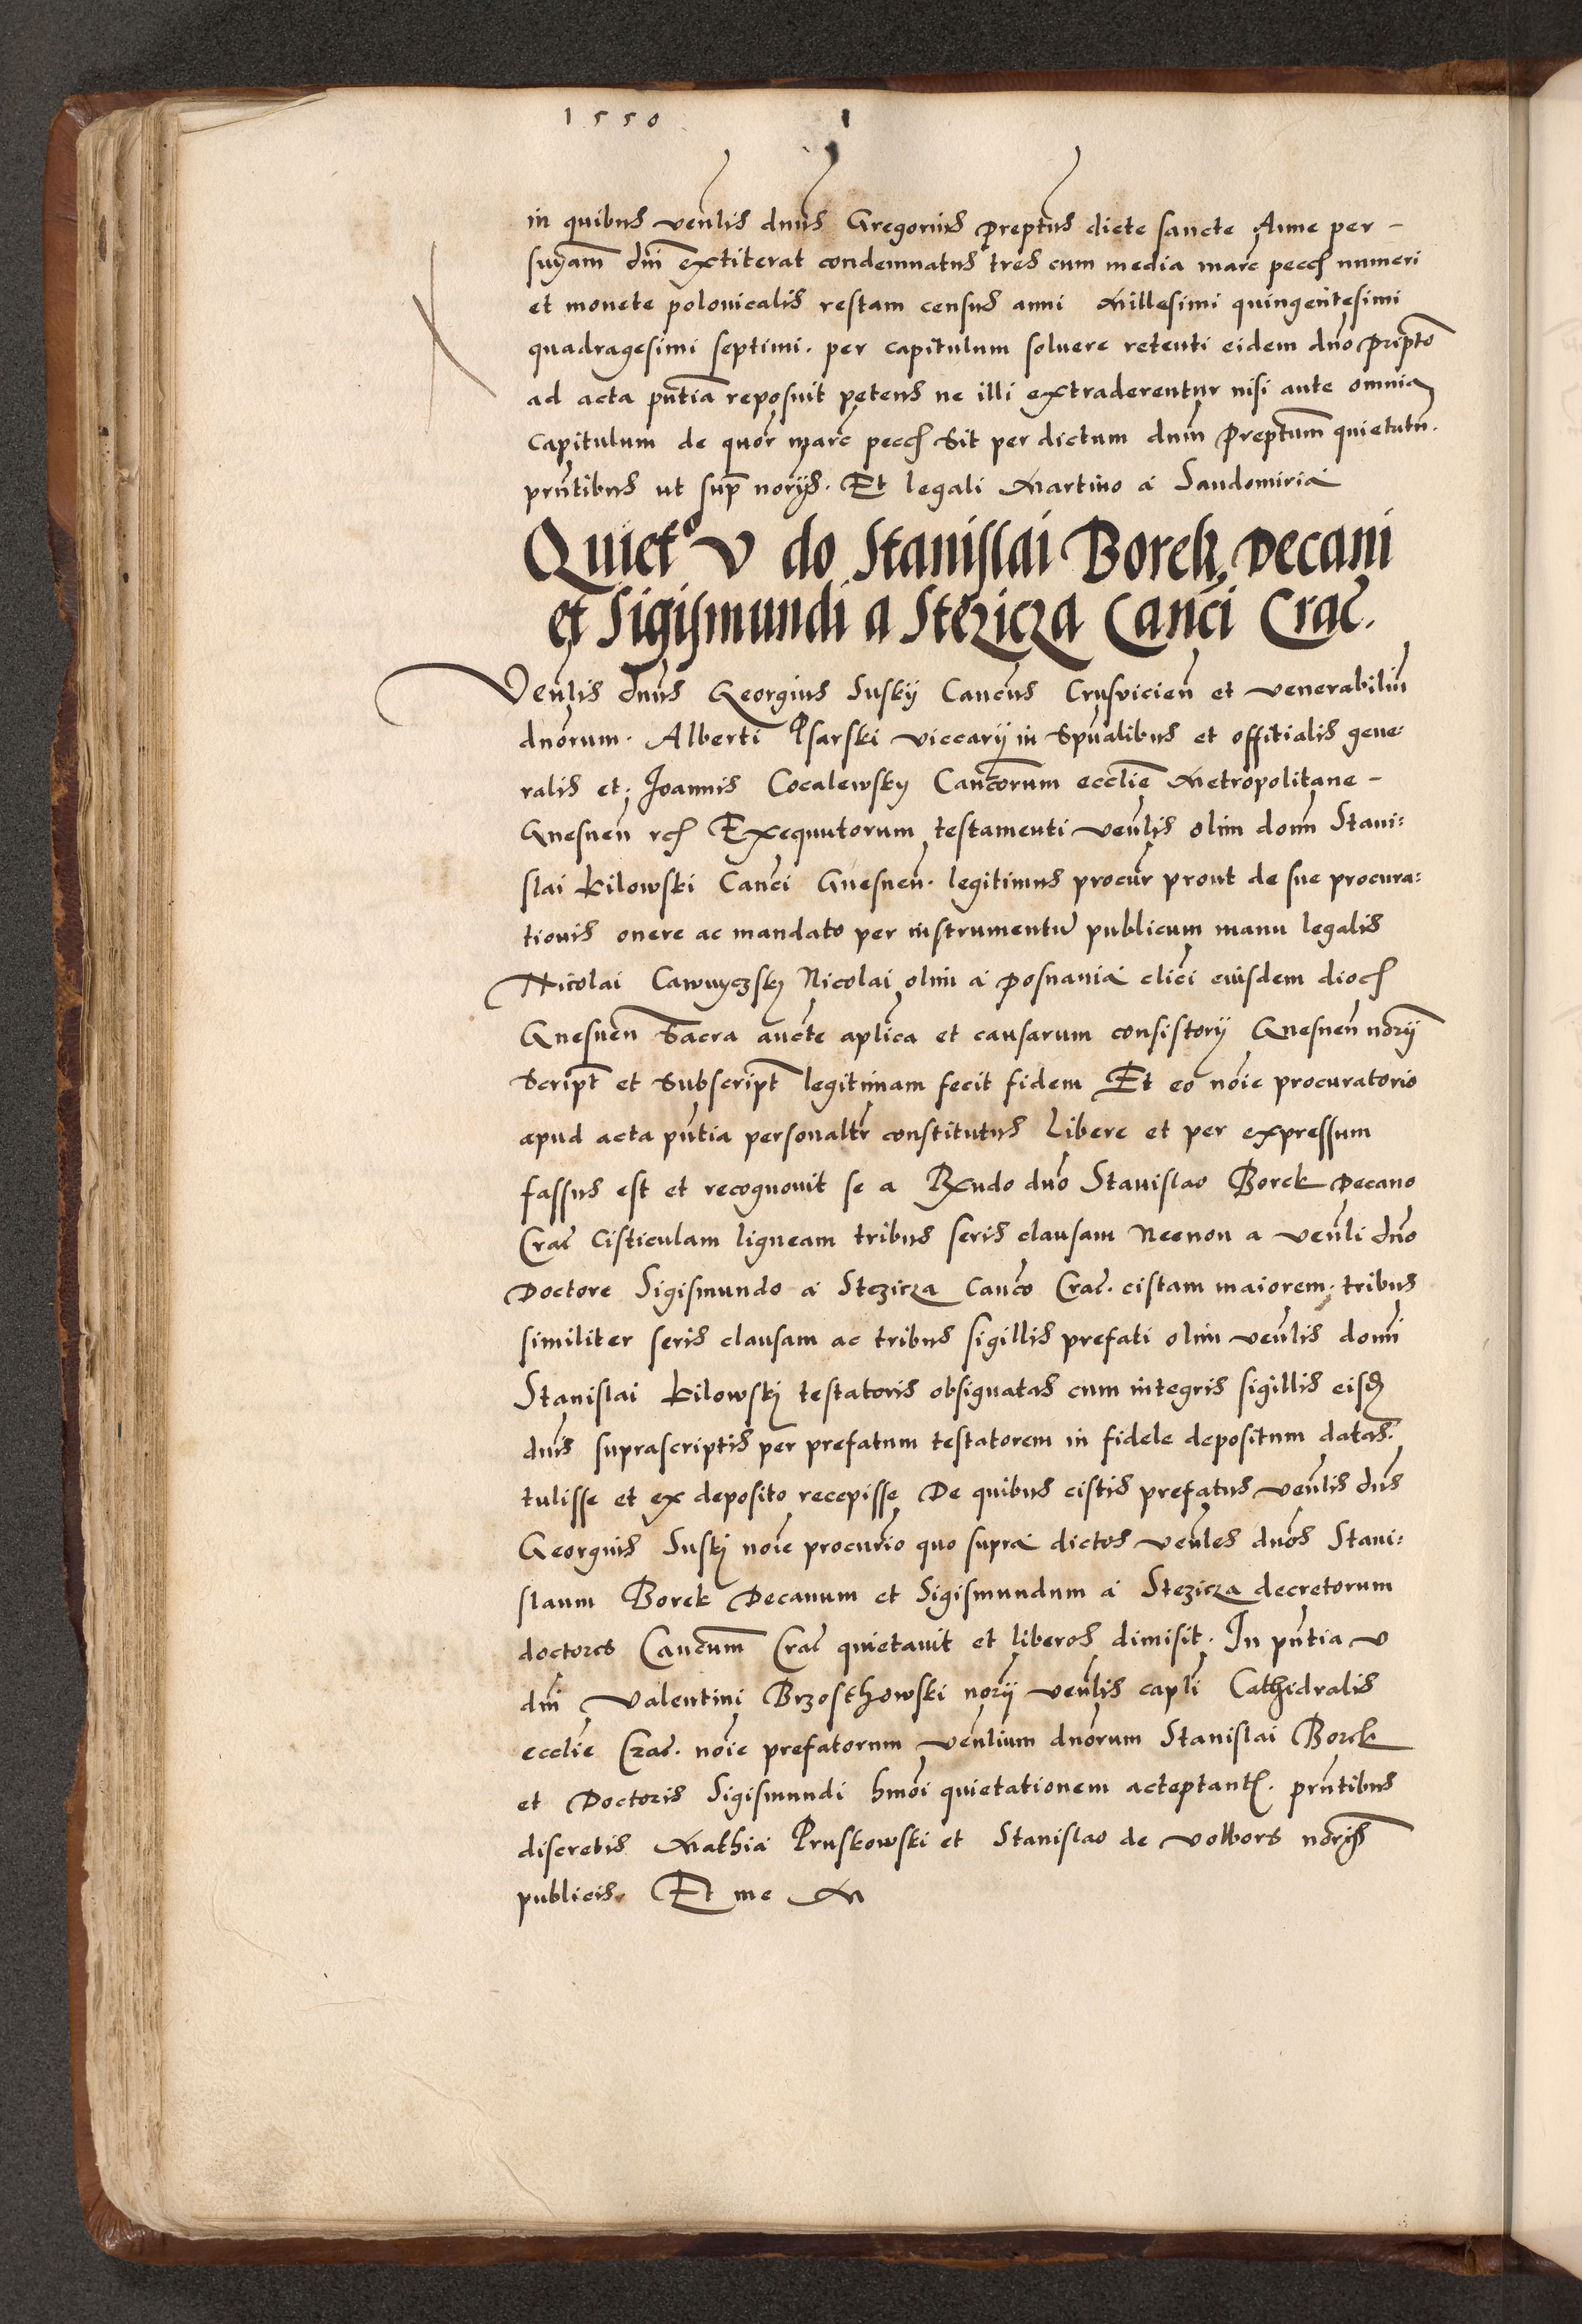 1550
in quibus venlis dnus Gregorius preptus dicte sancte Anne per -
suyam dni extiterat condemnatus tres cum media marc pecc numeri
et monete polonicalis restam census anni Millesimi quingentesimi
quadragesimi septimi. per capitulum soluere retenti eidem dno pripto
ad acta pntia reposuit petens ne illi extraderentur nisi ante omnia
Capitulum de quor marc pecc sit per dictum dnm preptum quietatu.
prntibus ut sup norijs. Et legali Martino a Sandomiria
Quiet° v do Stanislai Borek Decani
et Sigismundi a Stezicza Canci Crac.
Venlis dnus Georgius Suskij Cancus Crusvicien et venerabiliu
dnorum. Alberti Psarski viccarij in Spualibus et offitialis gene:
ralis et Joannis Cocalewsky Cancorum ecclie Metropolitane -
Gnesnen Exequutorum testamenti venlis olim domi Stani:
slai Kilowski Canci Gnesnen. legitimus procur prout de sue procura:
tionis onere ac mandato per instrumentu publicum manu legalis
Nicolai Nicolai olim a Posnania clici eiusdem dioc
Gnesnen Sacra aucte aplica et causarum consistorij Gnesnen norij
Script et Subscript legitimam fecit fidem Et eo noie procuratorio
apud acta pntia personaltr constitutus Libere et per expressum
fassus est et recognouit se a Rxndo dno Stanislao Borek Decano
Crac Cisticulam ligneam tribus seris clausam Necnon a venli dno
Doctore Sigismundo a Stezicza Canco Crac. cistam maiorem. tribus
similiter seris clausam ac tribus sigillis prefati olim venlis domi
Stanislai Kilowskj testatoris obsignatas cum integris sigillis eisd
dnis suprascriptis per prefatum testatorem in fidele depositum datas.
tulisse et ex deposito recepisse De quibus cistis prefatus venlis dns
Georgius Suskj noie procurio quo supra dictos venles dnos Stani:
slaum Borek Decanum et Sigismundum a Stezicza decretorum
doctores Cancum Crac quietauit et liberos dimisit. In pntia v
dni Valentini Brzosthowski norij venlis capli Cathedralis
ecclie Crac. noie prefatorum venlium dnorum Stanislai Borek
et Doctoris Sigismundi hmoi quietationem acteptant. prntibus
discretis Mathia Pruskowski et Stanislao de Wolbors norijs
publicis. Et me M